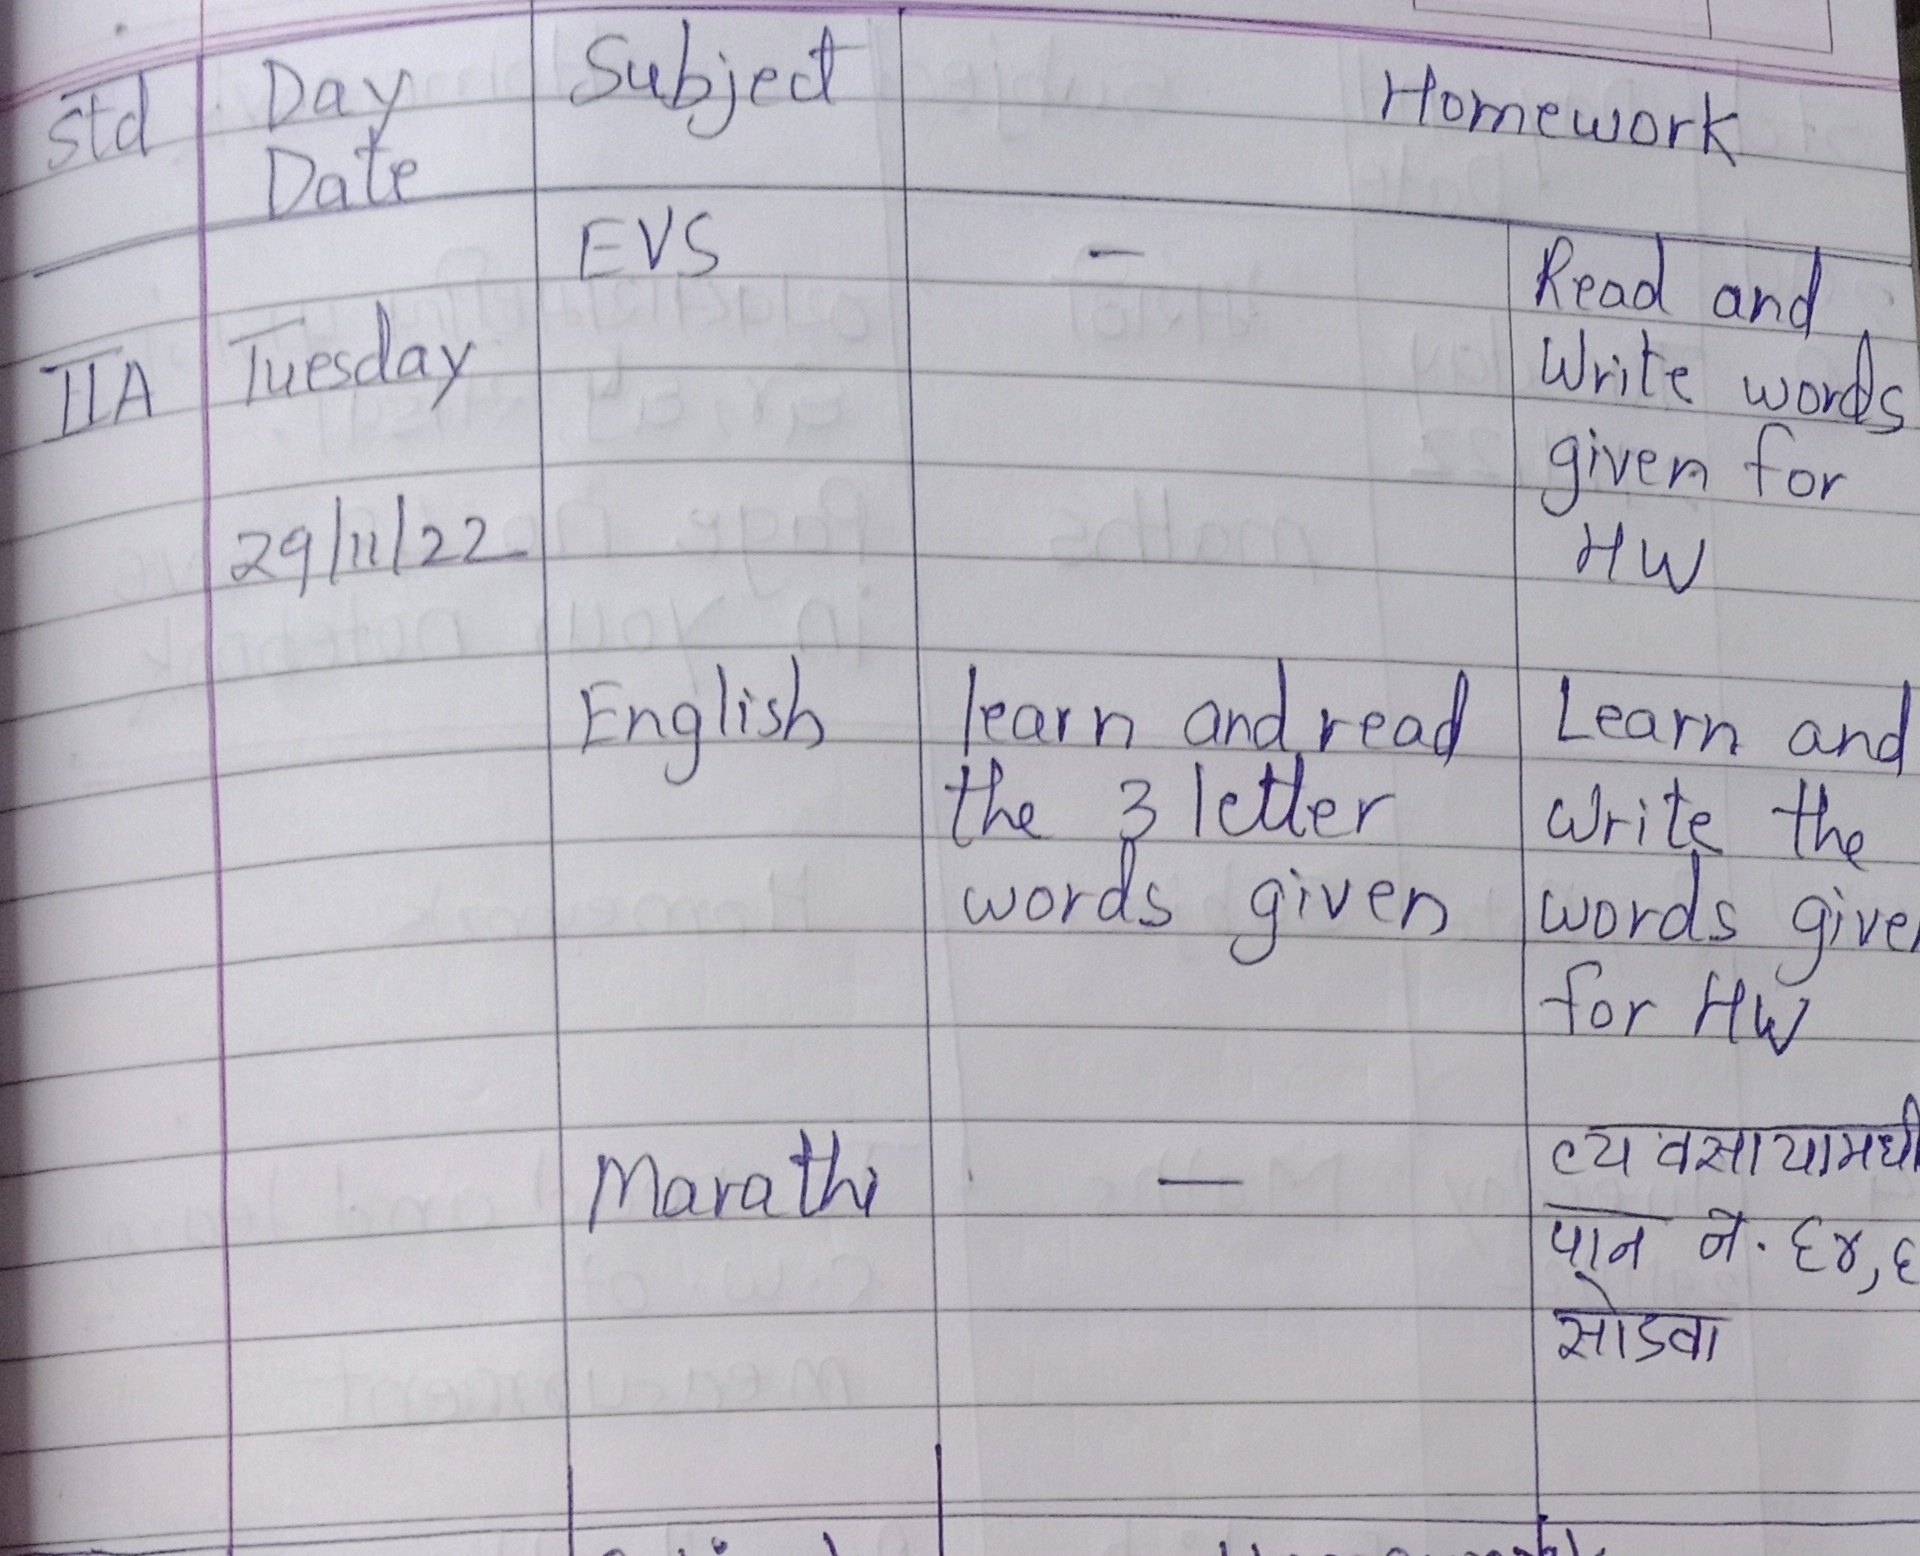 Std Day Subject Homework
Date
EVS — Read and
IIA Tuesday Write words
given for
29/11/22 HW
English learn and read Learn and
the 3 letter write the
words given words give
for HW
Marathi — व्यवसायामधी
पान नं. ६४,
सोडवा